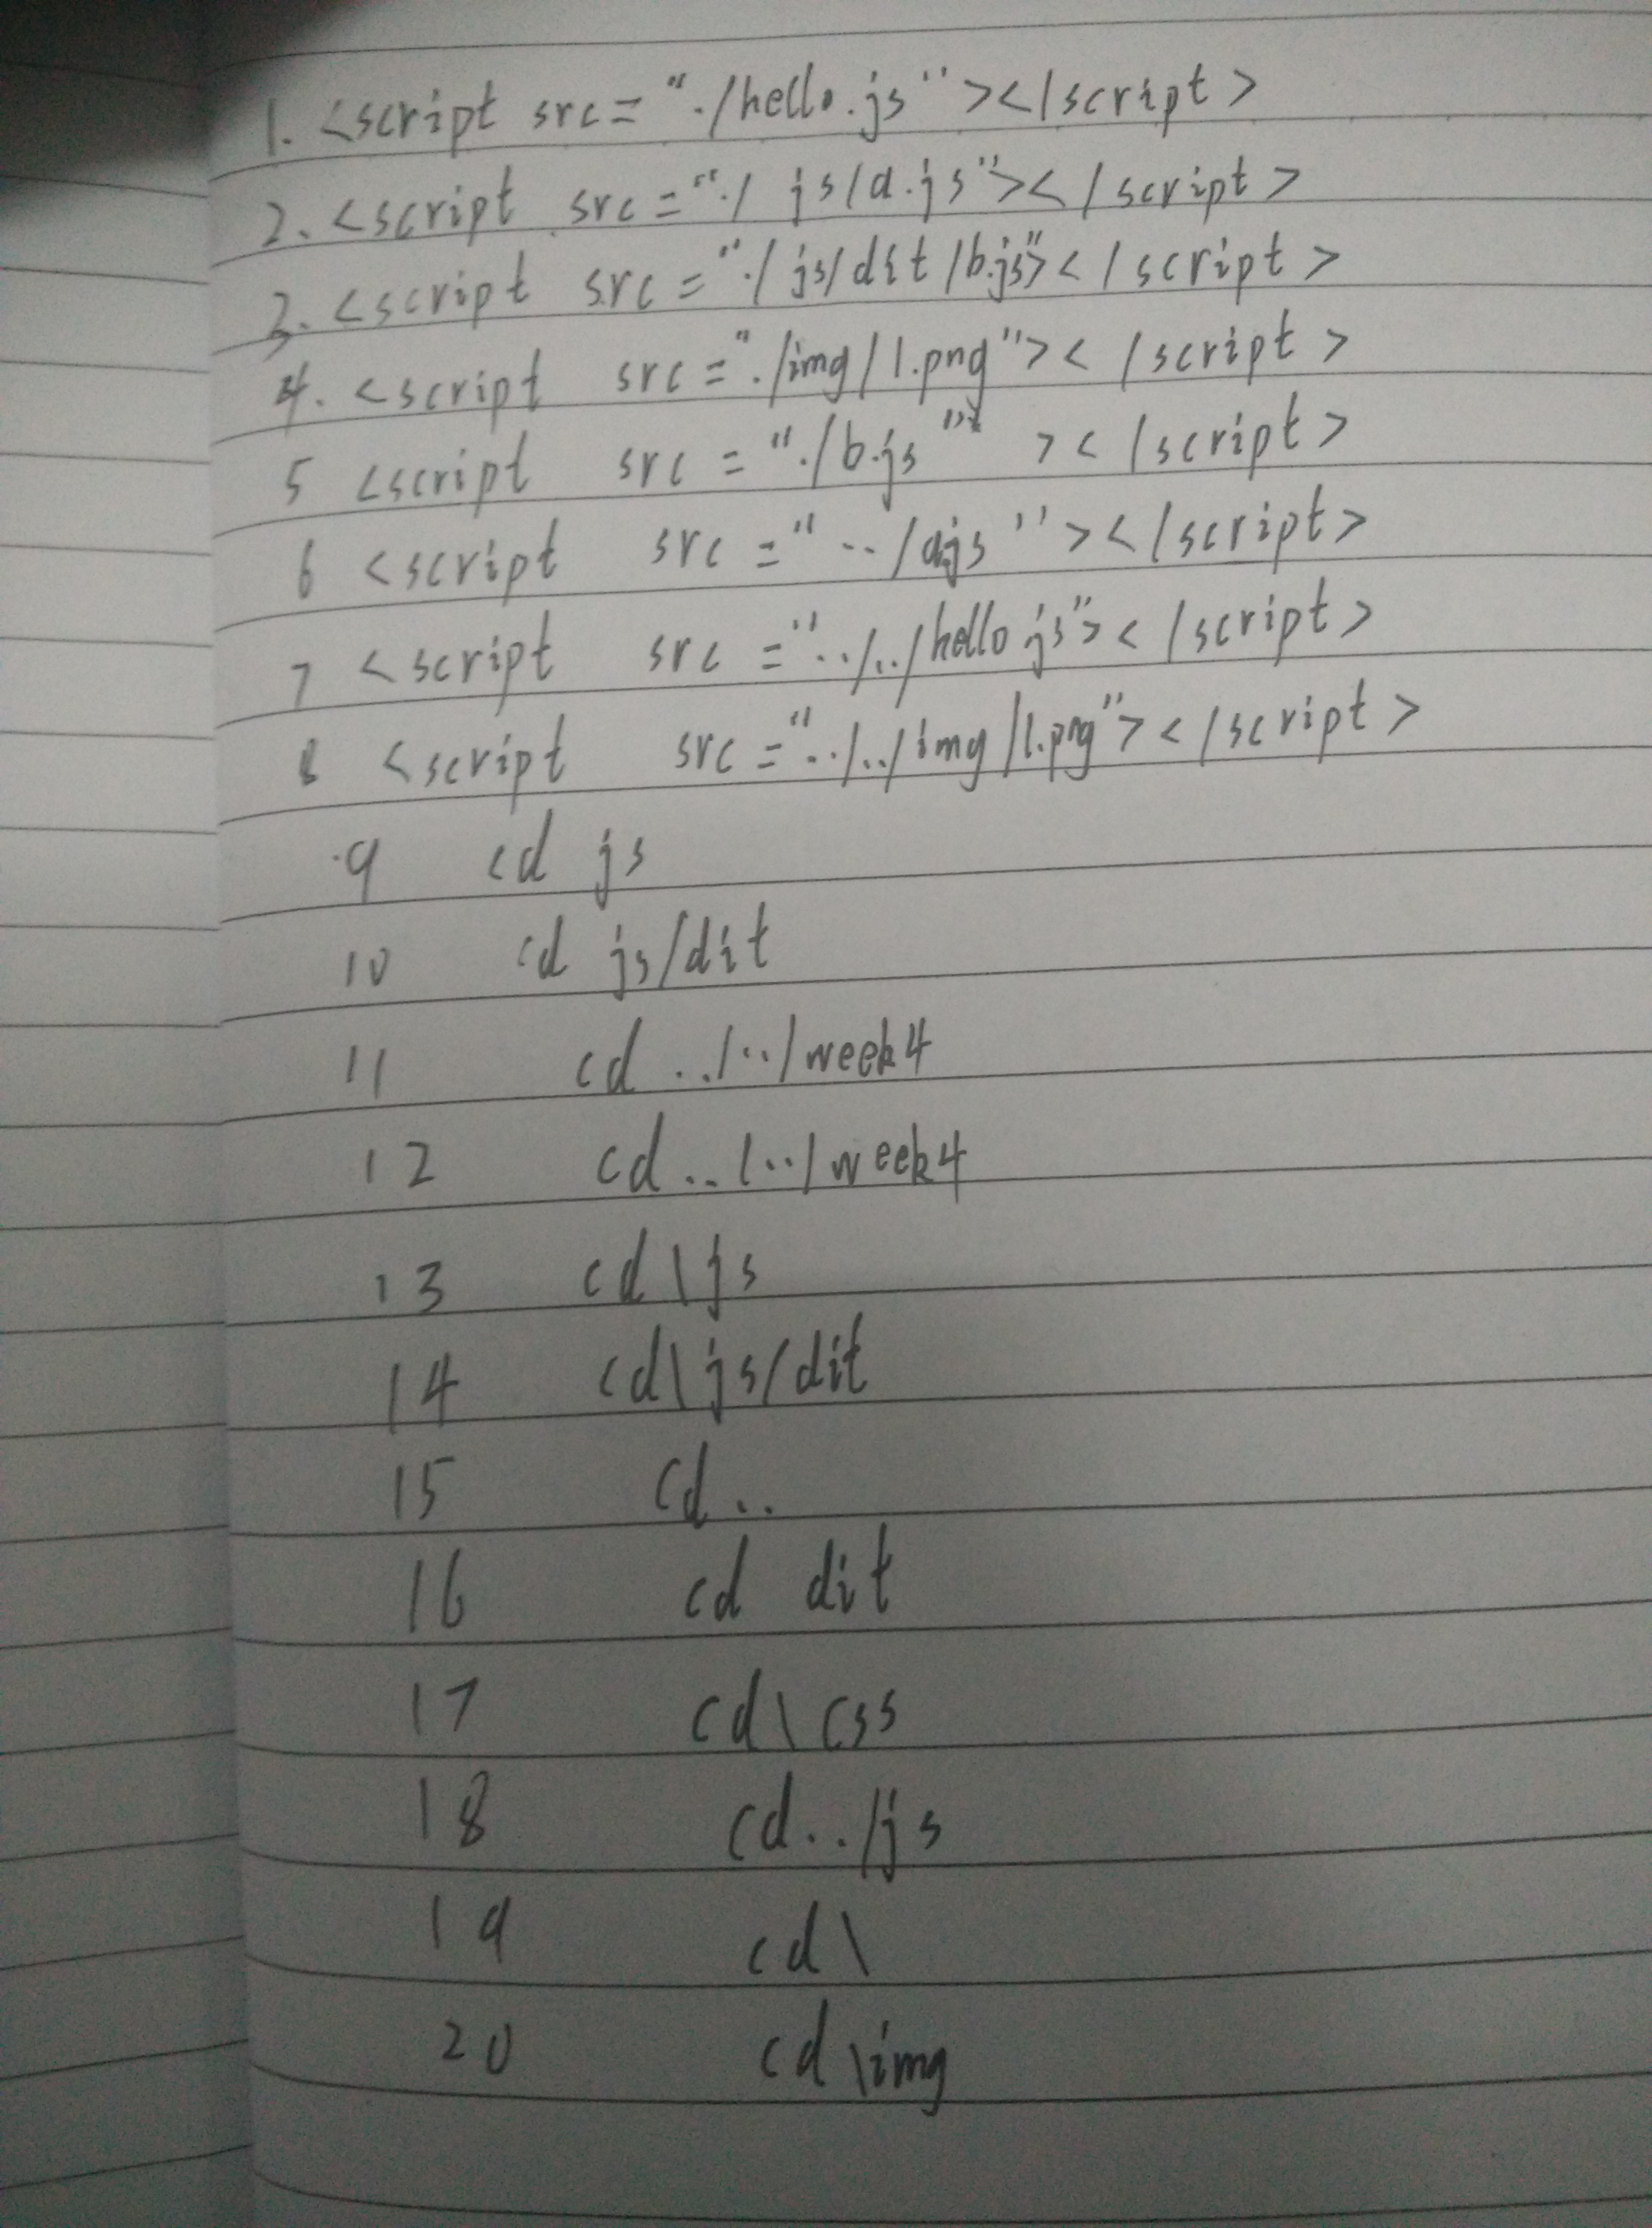 1. <script src="./hello.js"></script>
2. <script src="./js/a.js"></script>
3. <script src="./js/dit/b.js"></script>
4. <script src="./img/1.png"></script>
5 <script src="./b.js"></script>
6 <script src="../a.js"></script>
7 <script src="../../hello js"></script>
8 <script src="../../img/1.png"></script>
9 cd js
10 cd js/dit
11 cd ../../week4
12 cd../../week4
13 cd\js
14 cd\js/dit
15 cd..
16 cd dit
17 cd\css
18 cd../js
19 cd\
20 cd\img